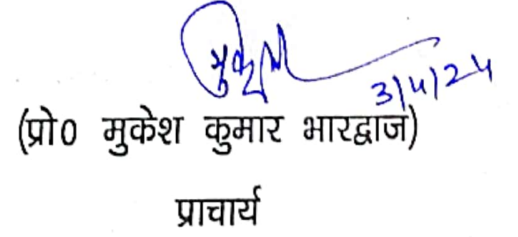 मुकेश
3/4/24
(प्रो0 मुकेश कुमार भारद्वाज)
प्राचार्य